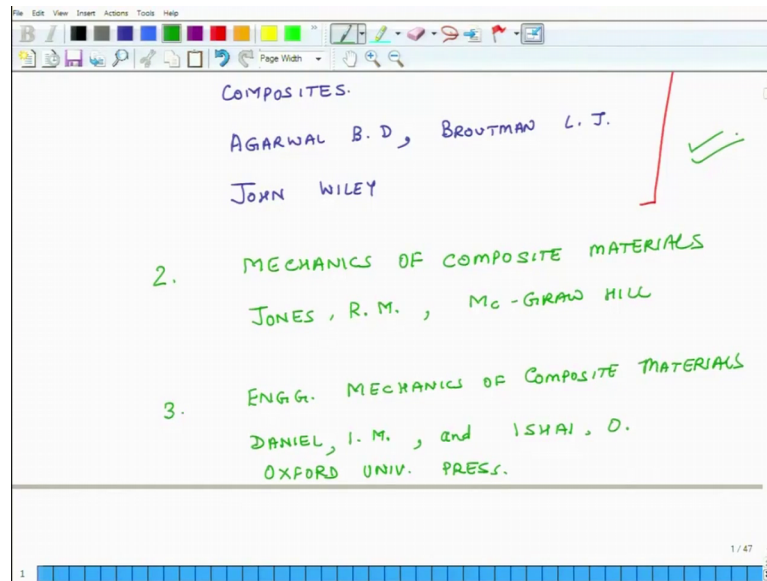 File Edit View Insert Actions Tools Help
B I
Page Width
COMPOSITES.
AGARWAL B. D, BROUTMAN L. J.
JOHN WILEY
2. MECHANICS OF COMPOSITE MATERIALS
JONES, R. M., Mc-GRAW HILL
3. ENGG. MECHANICS OF COMPOSITE MATERIALS
DANIEL, I. M., and ISHAI, O.
OXFORD UNIV. PRESS.
1 / 47
1